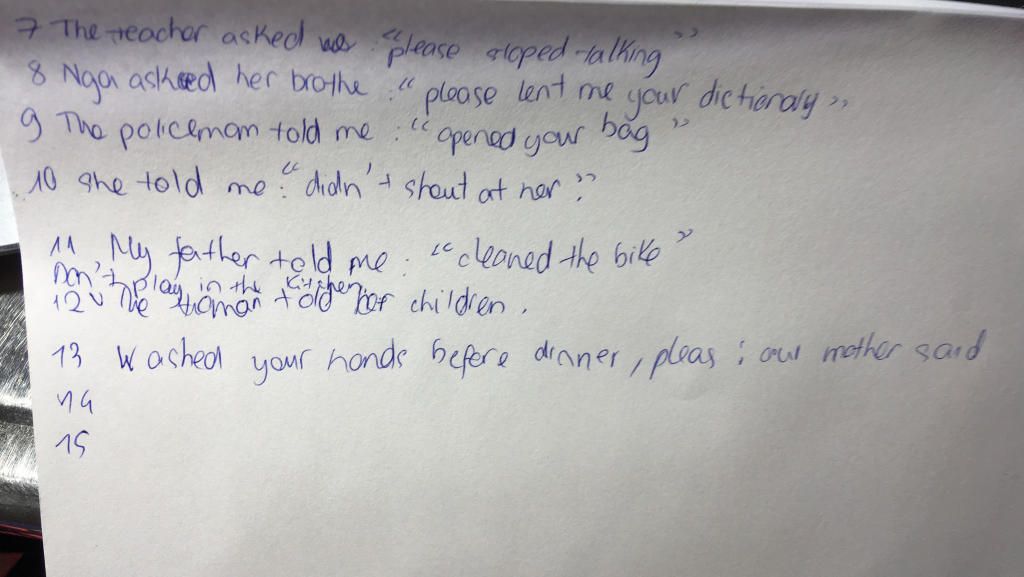 7 The teacher asked us : "please stoped talking"
8 Nga asked her brothe : " please lent me your dictionary "
9 The policeman told me : " opened your bag "
10 she told me : " didn't shout at her "
11 My father told me : " cleaned the bike "
Don't play in the kitchen,
12 The woman told her children .
13 Washed your hands before dinner, pleas ; our mother said
14
15